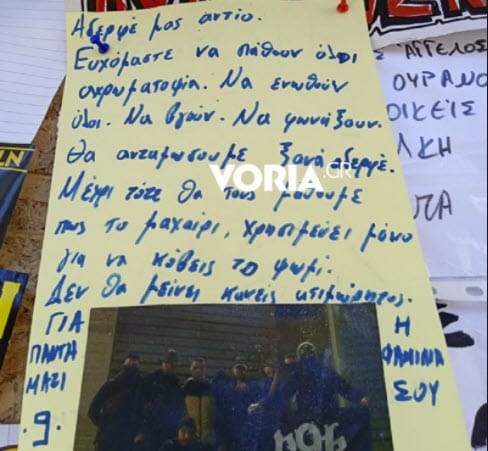 Αδερφέ μας αντίο.
Ευχόμαστε να πάθουν όλοι
αχρωματοψία. Να ενωθούν
όλοι. Να βγούν. Να φωνάξουν.
Θα ανταμωσουμε ξανά αδερφέ.
VORIA.GR
Μέχρι τότε θα τους μάθουμε
πως το μαχαίρι, χρησιμεύει μόνο
για να κόβεις το ψωμί.
Δεν θα μείνει κανείς ατιμώρητος.
ΓΙΑ
ΠΑΝΤΑ
ΜΑΖΙ
Η
ΦΑΜΙΛΙΑ
ΣΟΥ
VORIA.GR
ΑΓΓΕΛΟΣ
ΟΥΡΑΝΟ
ΟΙΚΕΙΣ